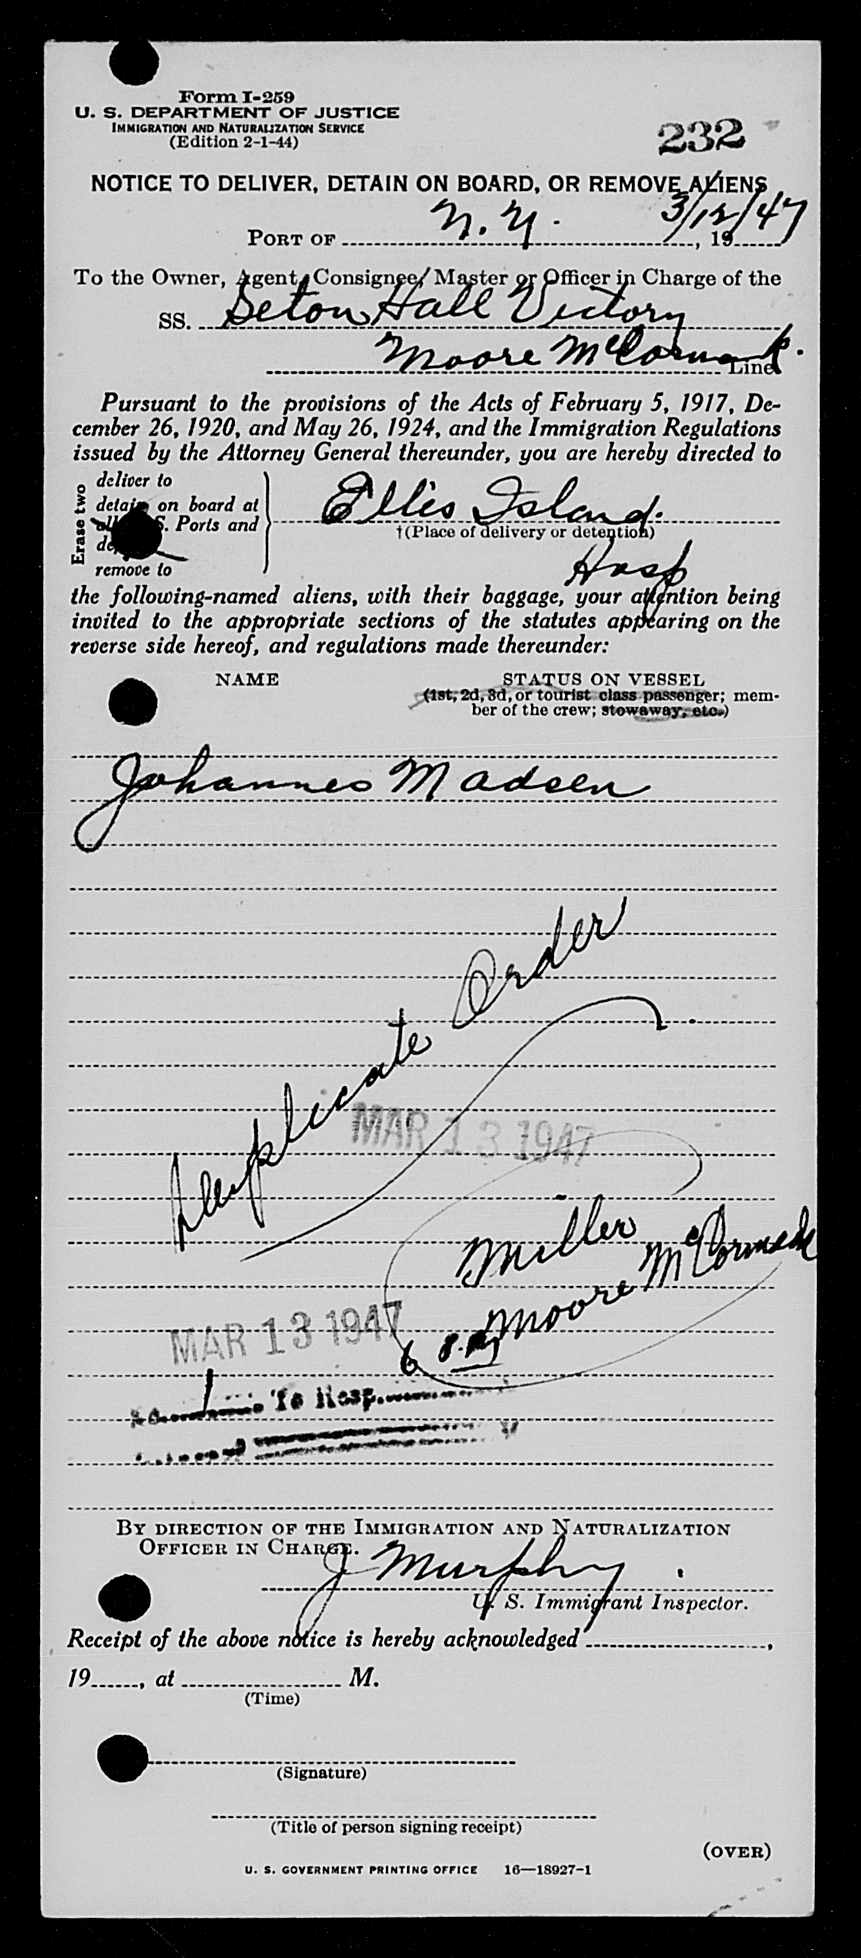 Form I-259
U. S. DEPARTMENT OF JUSTICE
IMMIGRATION AND NATURALIZATION SERVICE
(Edition 2-1-44)
232
NOTICE TO DELIVER, DETAIN ON BOARD, OR REMOVE ALIENS
PORT OF N. Y. 3/12/47, 19
To the Owner, Agent, Consignee, Master or Officer in Charge of the
SS. Seton Hall Victory
Moore McCormack. Line
Pursuant to the provisions of the Acts of February 5, 1917, De-
cember 26, 1920, and May 26, 1924, and the Immigration Regulations
issued by the Attorney General thereunder, you are hereby directed to
Erase two
deliver to
detain on board at
all S. Ports and
remove to
Ellis Island.
†(Place of delivery or detention)
Hosp
the following-named aliens, with their baggage, your attention being
invited to the appropriate sections of the statutes appearing on the
reverse side hereof, and regulations made thereunder:
NAME STATUS ON VESSEL
(1st, 2d, 3d, or tourist class passenger; mem-
ber of the crew; stowaway, etc.)
Johannes Madsen
Duplicate Order
MAR 13 1947
Miller
Moore McCormack
MAR 13 1947
To Hosp.
BY DIRECTION OF THE IMMIGRATION AND NATURALIZATION
OFFICER IN CHARGE.
J Murphy
U. S. Immigrant Inspector.
Receipt of the above notice is hereby acknowledged ,
19 , at M.
(Time)
(Signature)
(Title of person signing receipt)
(OVER)
U. S. GOVERNMENT PRINTING OFFICE 16—18927-1